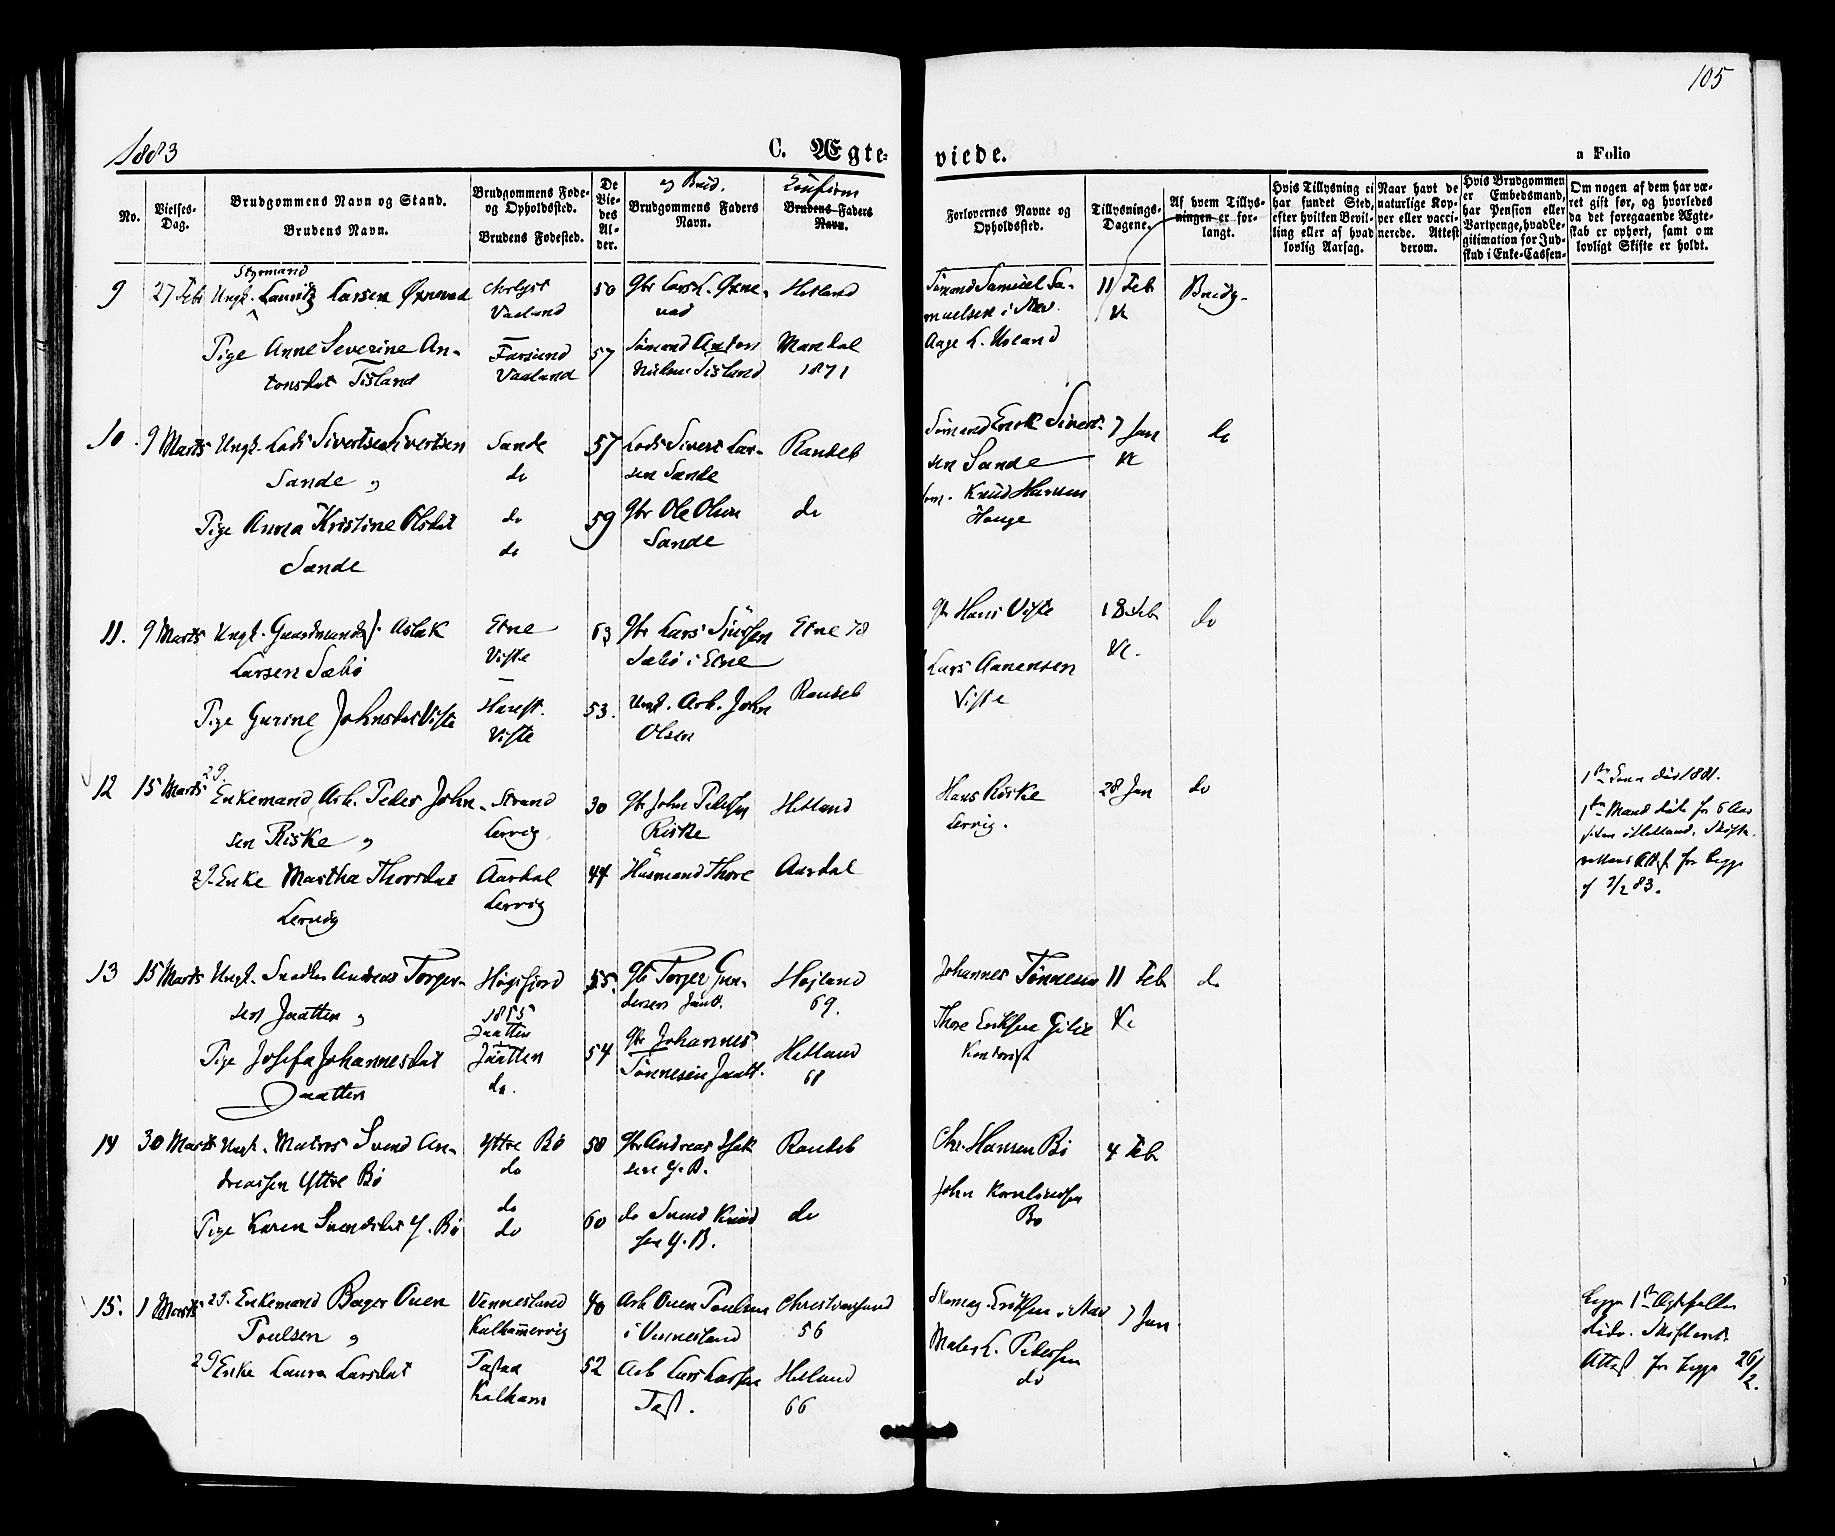 105
1883
C. Ægteviede.
a Folio
No.
Vielses-
Dag.
Brudgommens Navn og Stand.
Brudens Navn.
Brudgommens Føde-
og Opholdssted.
Brudens Fødested.
De
Vie-
des
Al-
der.
og Brud.
Brudgommens Faders
Navn.
Confirm
Brudens Faders
Navn.
Forlovernes Navne og
Opholdssted.
Tillysnings-
Dagene.
Af hvem Tillys-
ningen er for-
langt.
Hvis Tillysning ei
har fundet Sted,
efter hvilken Bevil-
ling eller af hvad
lovlig Aarsag.
Naar havt de
naturlige Kop-
per eller vacci-
nerede. Attest
derom.
Hvis Brudgommen
er Embedsmand,
har Pension eller
Vartpenge, hvad Le-
gitimation for Ind-
skud i Enke-Cassen-
Om nogen af dem har væ-
ret gift før, og hvorledes
da det foregaaende Ægte-
skab er ophørt, samt om
lovligt Skifte er holdt.
9 27 Feb Styrmand
Ungk. Lauritz Larsen Øxnevad
Vaaland
50 Gbr Lars L. Øxne-
vad
Hetland
Sømand Samuel Sa-
muelsen i Stav.
Aage L. Usland
11 Feb
K
Brudg.
Pige Anne Severine An-
tonsdat Tisland
Farsund
Vaaland
57 Sømand Anton
Nielsen Tisland
Mandal
1871
10. 9 Marts Ungk. Lods Sivertsen Sivertsen
Sande
Sande
do
57 Lods Sivert Lar-
sen Sande
Randeb
Sømand Enok Sivert-
sen Sande
Knud Hansen
Hauge
7 Jan
K
do
Pige Anna Kristine Olsdat
Sande
do
do
59 Gbr Ole Olsen
Sande
do
11. 9 Marts Ungk. Gaardmands. Aslak
Larsen Sæbø
Etne
Viste
63 Gbr Lars Sjursen
Sæbø i Etne
Etne 78
Gbr Hans Viste
Lars Aanensen
Viste
18 Feb
K.
do
Pige Gurine Johnsdat Viste
Harest.
Viste
53. Ungk. Arb. John
Olsen
Randeb
12 15 Marts 2 G. Enkemand Arb. Peder John-
sen Riske
Strand
Lervig
30 Gbr John Pedersen
Riske
Hetland
Hans Riske
Lervig.
28 Jan
do
1ste Kone død 1881.
1ste Mand døde for 6 Aar
siden i Hetland. Skifte-
rettens Attest for begge
af 7/2 83.
2 G. Enke Martha Thorsdat
Lervig
Aardal
Lervig
44 Husmand Thore
Aardal
13 15 Marts Ungk. Snedker Andreas Torger-
sen Jaatten
Høgsfjord
1855
Jaatten
55. Gbr Torger Gun-
dersen Jaatt.
Højland
69.
Johannes Tønnesen
Thore Eriksen Gilje
Kontorist
11 Feb
K.
do
Pige Josefa Johannesdat
Jaatten
Jaatten
do.
54 Gbr Johannes
Tønnesen Jaatt.
Hetland
68
14 30 Marts Ungk. Matros Svend An-
dreassen Yttre Bø
Yttre Bø
do
58 Gbr Andreas Isak
sen Y. B.
Randeb
Chr. Hansen Bø
John Korneliussen
Bø
4 Feb
Pige Karen Svendsdat Y. Bø
do
do
60 do Svend Knud
sen Y. B.
do
15. 1 Marts 2 G. Enkemand Bager Ouen
Poulsen
Vennesland
Kalhammervig
40 Arb Ouen Poulsen
i Vennesland
Christianssand
56
Eriksen i Stav
L. Pedersen
do
7 Jan.
begge 1ste Ægtefæller
døde. Skifteret-
Attest for begge 26/2.
2 G Enke Laura Larsdat
Tastad
Kalham
52 Arb Lars Larsen
Tast.
Hetland
66